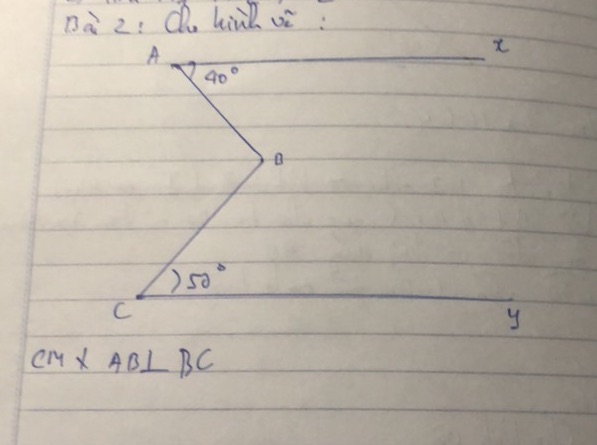 Bài 2: Cho hình vẽ :
A x
40°
B
50°
C y
AB ⊥ BC